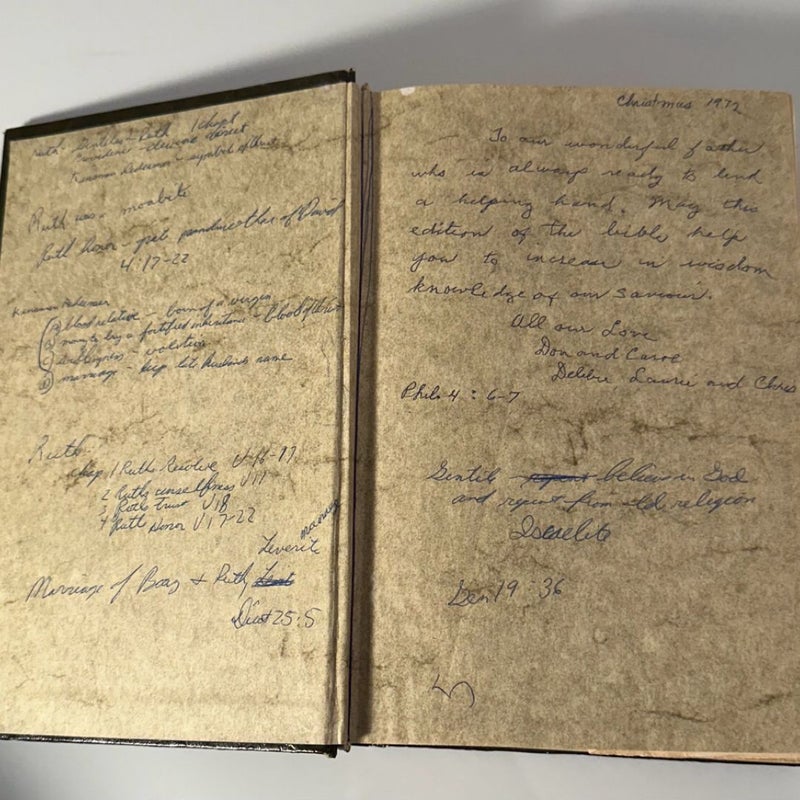 Ruth - Gentiles - Ruth 1 chapt
Kinsman Redeemer - symbol of
Ruth was - moabite
Ruth honor - great grandmother of David
4:17-22
Kinsman Redeemer
A blood relative - born of a virgin
B money to buy a forfited inheritance - blood of Christ
C willingness - volition
D marriage - keep late husbands name
Ruth
Chap 1 Ruth Resolve V-16-17
2 Ruths unselfness V17
3 Ruths trust V18
4 Ruth Honor V17-22
Leverite marriage
Marriage of Boaz + Ruth
Deut 25:5
Christmas 1972
To our wonderful father
who is always ready to lend
a helping hand. May this
edition of the bible help
you to increase in wisdom
knowledge of our Saviour.
All our Love
Don and Carol
Debbie Laurie and Chris
Phil. 4:6-7
Gentile repent believe in God
and repent from old religion
Iseselite
Gen 19:36